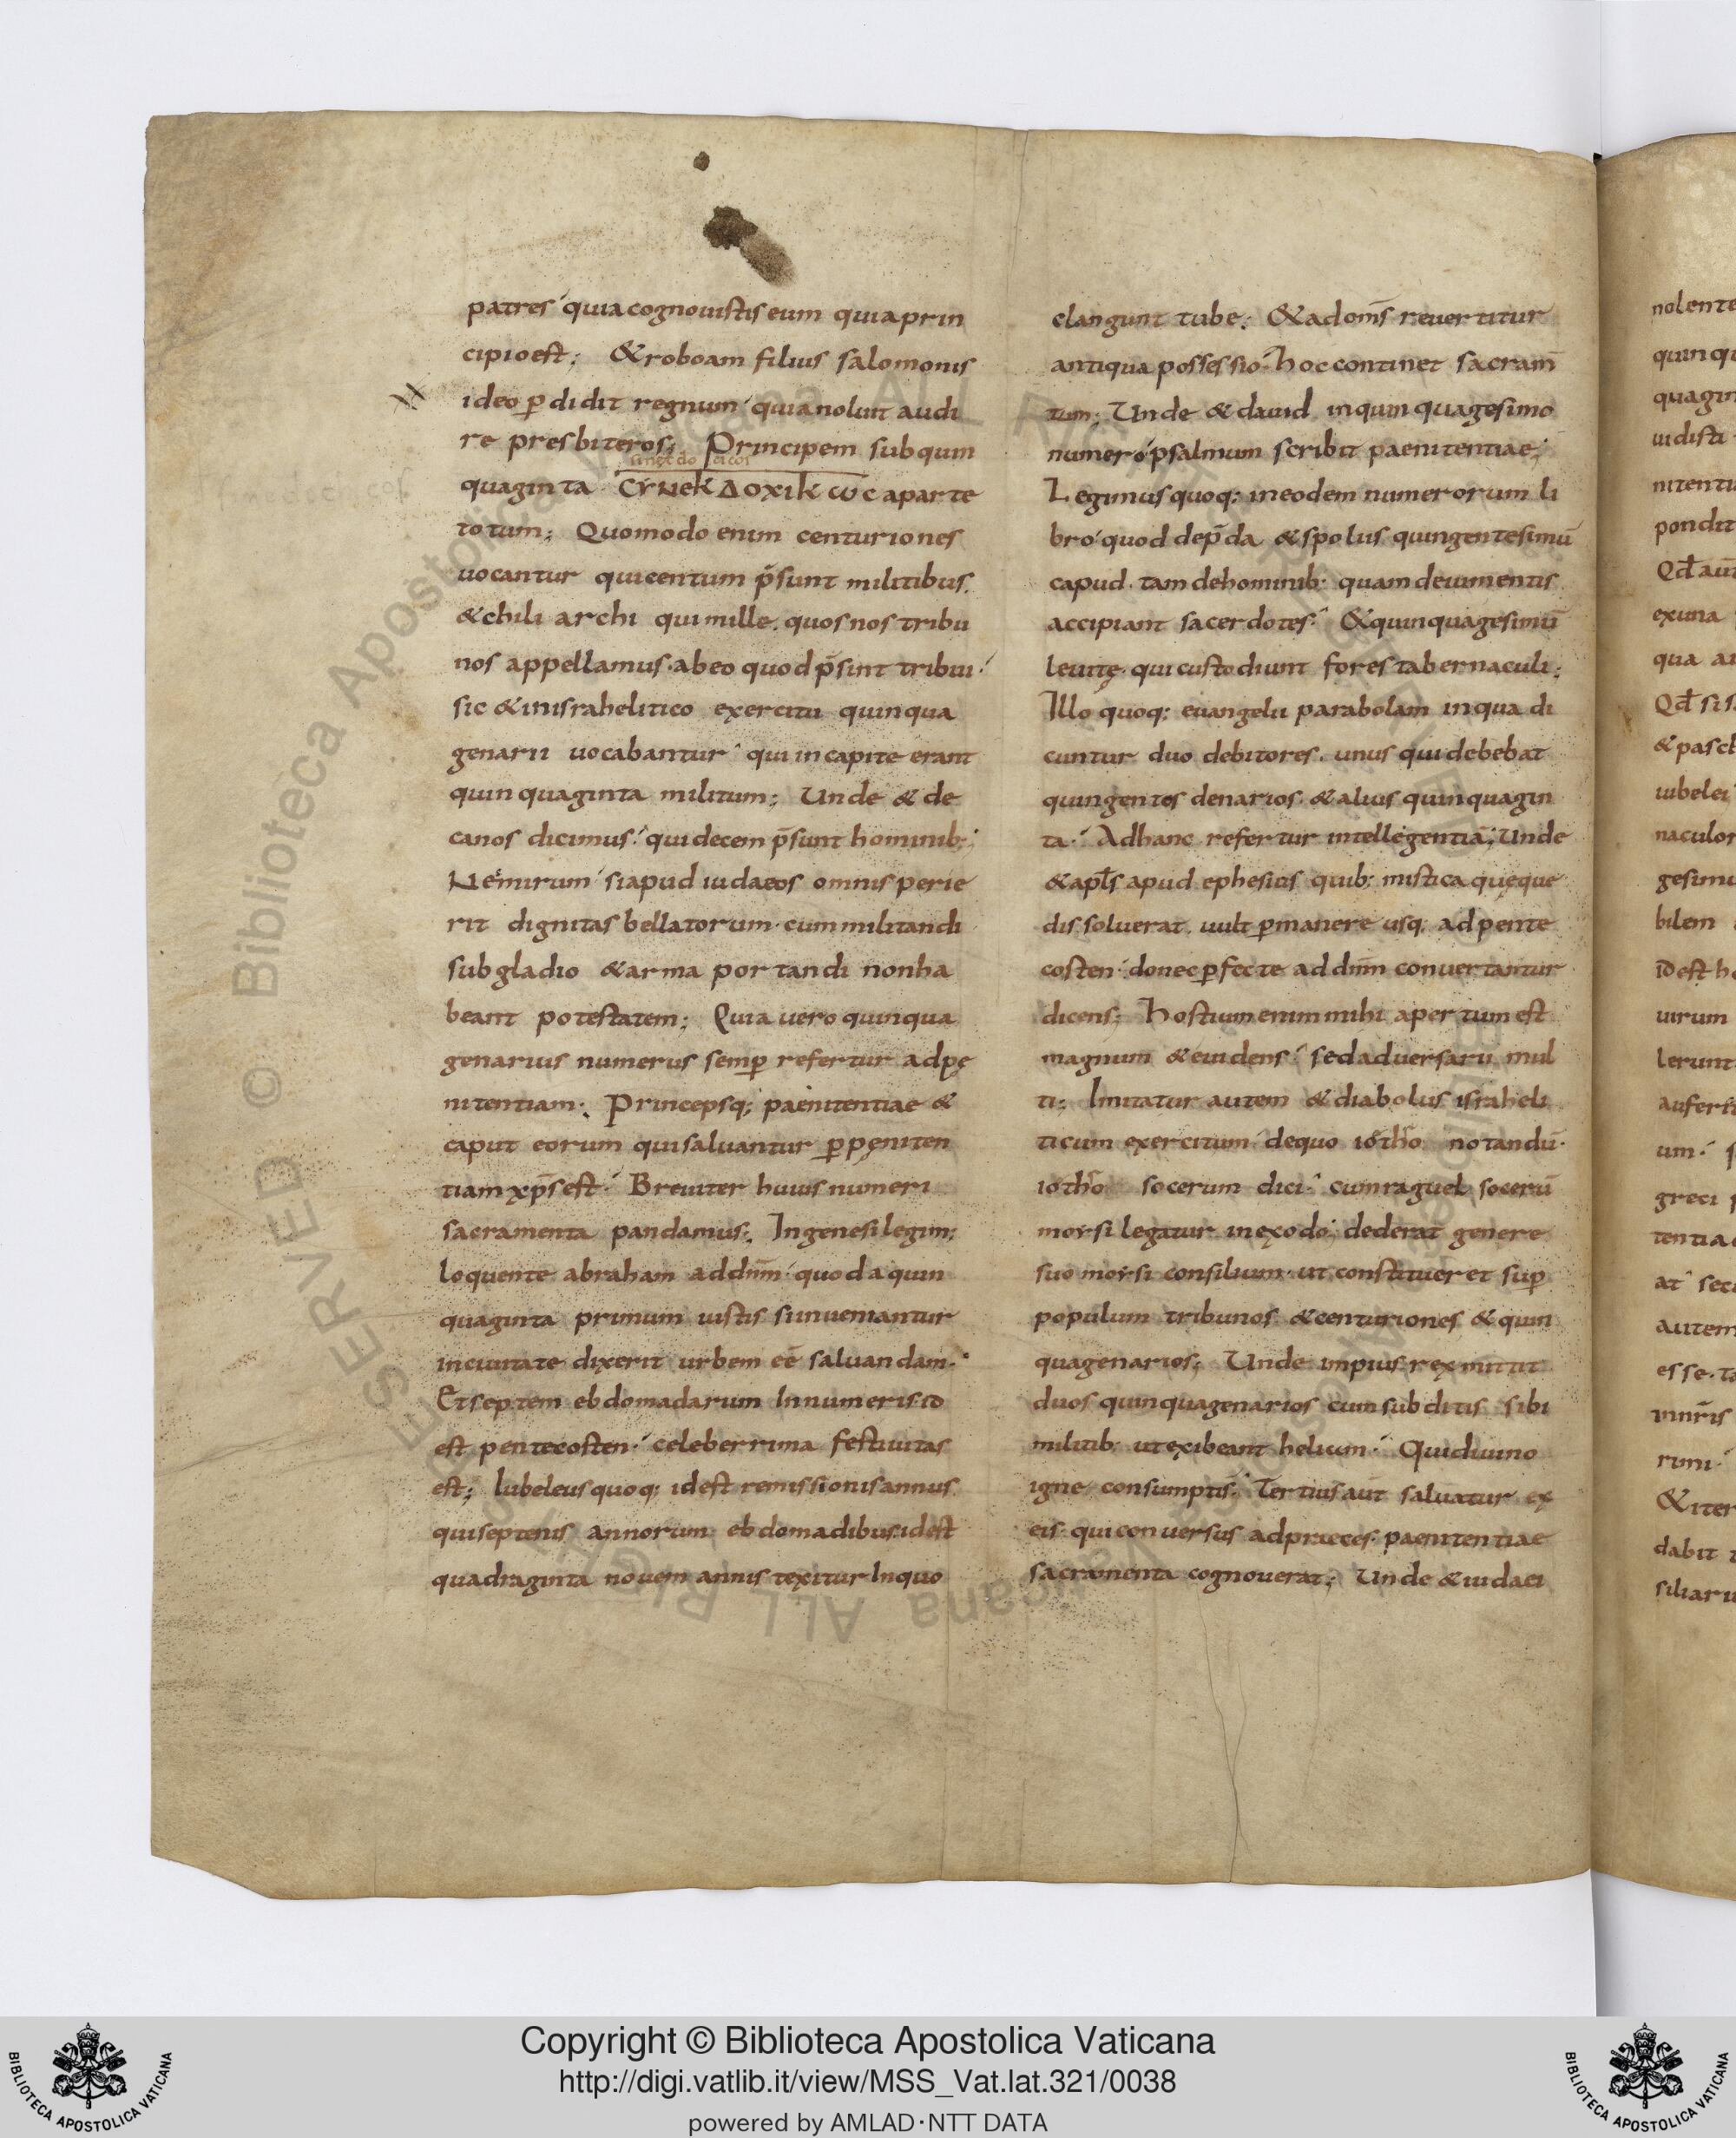 patres quia cognouistis eum quia prin
cipio est; & roboam filius salomonis
ideo ꝑdidit regnum quia noluit audi
re presbiteros; Principem sub quin
quaginta CΥΝΕΚΔΟΧΙΚωC a parte
totum; Quomodo enim centuriones
uocantur qui centum p̄sunt militibus.
& chiliarchi qui mille. quos nos tribu
nos appellamus· ab eo quod p̄sint tribui·
sic & in israhelitico exercitu quinqua
genarii uocabantur qui in capite erant
quinquaginta militum; Unde & de
canos dicimus· qui decem p̄sunt hominib;
Nemirum si apud iudaeos omnis perie
rit dignitas bellatorum· cum militandi
sub gladio & arma portandi non ha
beant potestatem; Quia uero quinqua
genarius numerus semꝑ refertur ad pę
nitentiam; Princepsq; paenitentiae &
caput eorum qui saluantur ꝑ pęniten
tiam xp̄s est· Breuiter huius numeri
sacramenta pandamus; In genesi legim;
loquente abraham ad dn̄m· quod a quin
quaginta primum iustis si inueniantur
in ciuitate dixerit urbem ee̅ saluandam·
Et septem ebdomadarum In numeris id
est pentecosten· celeberrima festiuitas
est; Iubeleus quoq; id est remissionis annus
qui septenis annorum ebdomadibus· id est
quadraginta nouem annis texitur In quo
clangunt tube; & ad om̄s reuertitur
antiqua possessio· hoc continet sacram̄
tum; Unde & dauid in quinquagesimo
numero psalmum scribit paenitentiae;
Legimus quoq; in eodem numerorum li
bro· quod de p̄da & spoliis quingentesimū
capud· tam de hominib; quam de iumentis
accipiant sacerdotes· & quinquagesimū
leuitę· qui custodiunt fores tabernaculi;
Illo quoq; euangelii parabolam in qua di
cuntur duo debitores. unus qui debebat
quingentos denarios & alius quinquagin
ta· Ad hanc refertur intellegentiā; Unde
& apl̄s apud ephesios quib; mistica quęque
dissoluerat. uult ꝑmanere usq; ad pente
costen· donec ꝑfecte ad dn̄m conuertantur
dicens; hostium enim mihi apertum est
magnum & euidens· sed aduersarii mul
ti; Imitatur autem & diabolus israheli
ticum exercitum de quo iotho notandū·
iotho socerum dici· cum raguel socerū
moysi legatur in exodo; dederat genere
suo moysi consilium· ut constitueret suꝑ
populum tribunos & centuriones & quin
quagenarios; Unde impius rex mittit
duos quinquagenarios cum subditis sibi
militib; ut exibeant heliam· Qui diuino
igne consumptis· Tertius aūt saluatur ex
eis· qui conuersus ad praeces paenitentiae
sacramenta cognouerat; Unde & iudaei
Copyright © Biblioteca Apostolica Vaticana
http://digi.vatlib.it/view/MSS_Vat.lat.321/0038
powered by AMLAD·NTT DATA
BIBLIOTECA APOSTOLICA VATICANA
BIBLIOTECA APOSTOLICA VATICANA